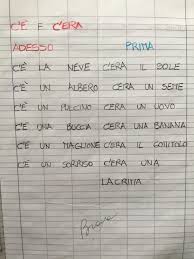 C'È E C'ERA
ADESSO PRIMA
C'È LA NEVE C'ERA IL SOLE
C'È UN ALBERO C'ERA UN SEME
C'È UN PULCINO C'ERA UN UOVO
C'È UNA BUCCIA C'ERA UNA BANANA
C'È UN MAGLIONE C'ERA IL GOMITOLO
C'È UN SORRISO C'ERA UNA
LACRIMA
Brava